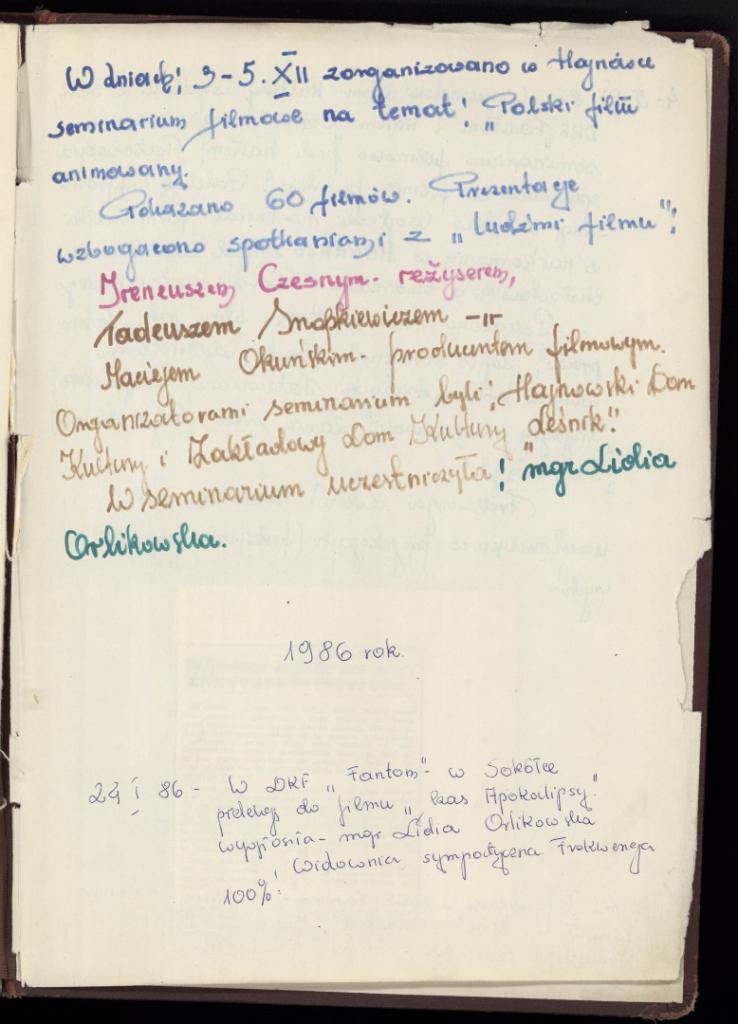 W dniach: 3-5. XII zorganizowano w Hajnówce
seminarium filmowe na temat: "Polski film
animowany.
Pokazano 60 filmów. Prezentacje
wzbogacono spotkaniami z "ludźmi filmu":
Ireneuszem Czesnym - reżyserem,
Tadeuszem -II-
Maciejem Okuńskim - producentem filmowym.
Organizatorami seminarium byli: Hajnowski Dom
Kultury i Zakładowy Dom Kultury "Leśnik".
W seminarium uczestniczyła: mgr Lidia
Orlikowska.
1986 rok.
I 86 - W DKF "Fantom" w Sokółce
prelekcję do filmu "Czas Apokalipsy"
wygłosiła - mgr Lidia Orlikowska
Widownia sympatyczna Frekwencja
100%!